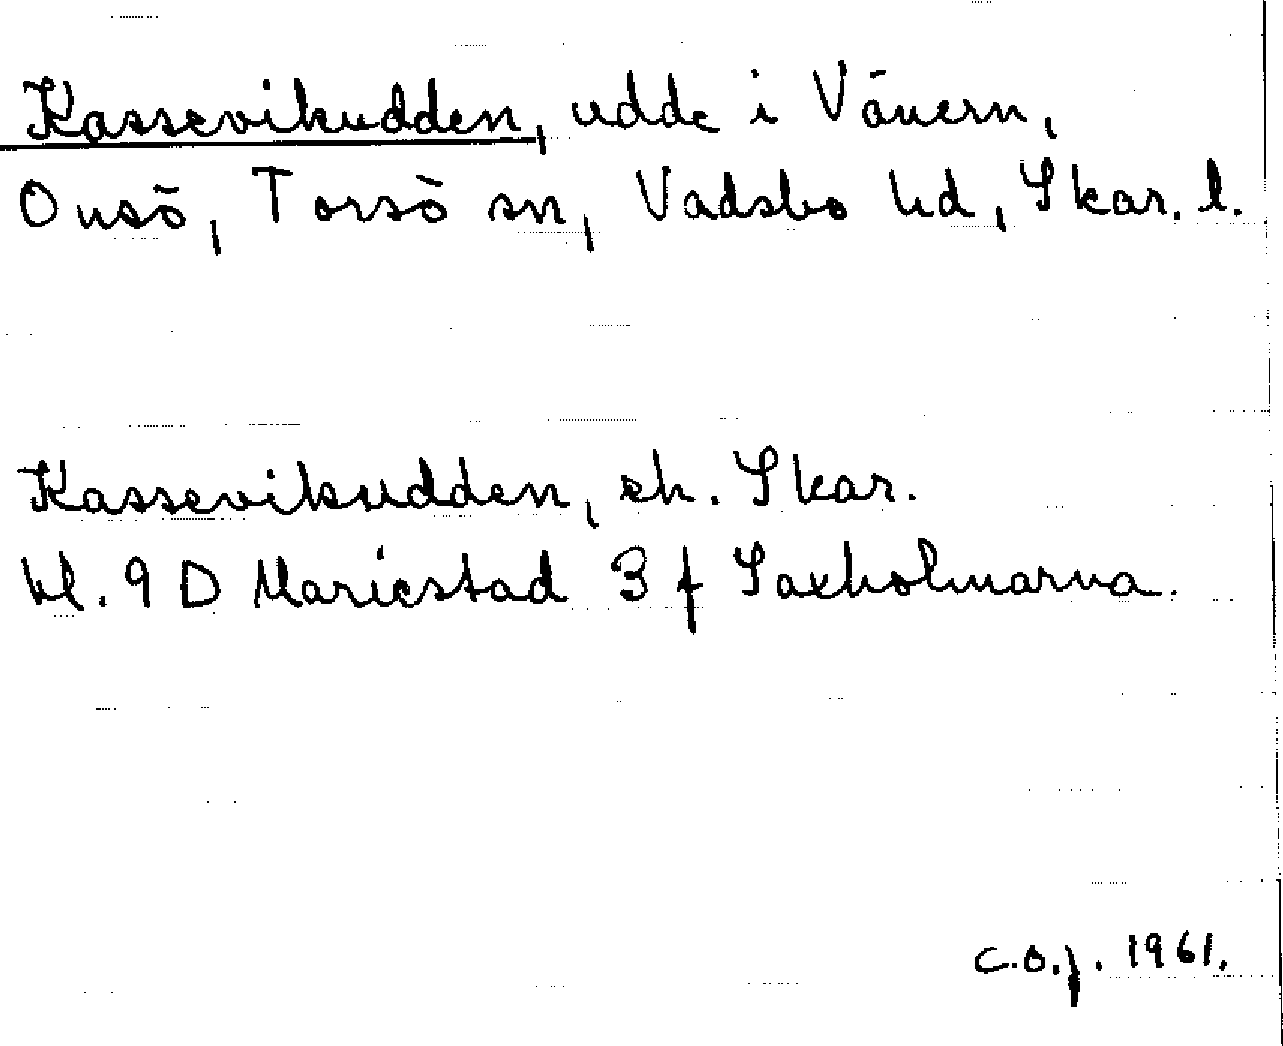 Kassevikudden, udde i Vänern,
Onsö, Torsö sn, Vadsbo hd, Skar. l.
Kassevikudden, ek. Skar.
bl. 9 D Mariestad 3 f Saxholmarna.
C.O.f. 1961.